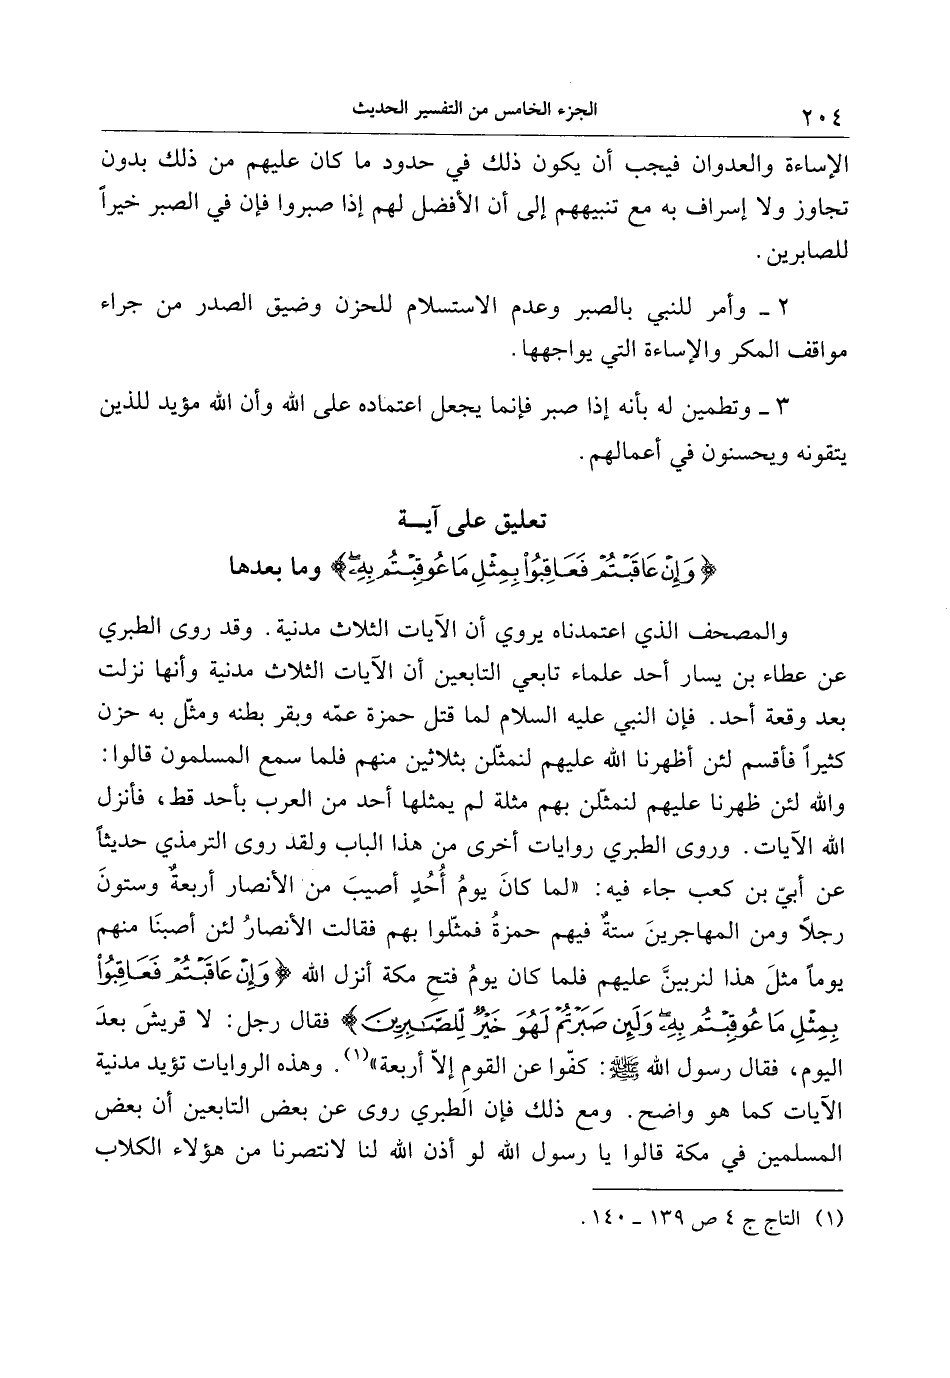 ٢٠٤ الجزء الخامس من التفسير الحديث
الإساءة والعدوان فيجب أن يكون ذلك في حدود ما كان عليهم من ذلك بدون
تجاوز ولا إسراف به مع تنبيههم إلى أن الأفضل لهم إذا صبروا فإن في الصبر خيراً
للصابرين .
٢ ـ وأمر للنبي بالصبر وعدم الاستسلام للحزن وضيق الصدر من جراء
مواقف المكر والإساءة التي يواجهها .
٣ ـ وتطمين له بأنه إذا صبر فإنما يجعل اعتماده على الله وأن الله مؤيد للذين
يتقونه ويحسنون في أعمالهم .
تعليق على آيـة
﴿ وَإِنْ عَاقَبْتُمْ فَعَاقِبُوا۟ بِمِثْلِ مَا عُوقِبْتُم بِهِۦ ﴾ وما بعدها
والمصحف الذي اعتمدناه يروي أن الآيات الثلاث مدنية . وقد روى الطبري
عن عطاء بن يسار أحد علماء تابعي التابعين أن الآيات الثلاث مدنية وأنها نزلت
بعد وقعة أحد . فإن النبي عليه السلام لما قتل حمزة عمّه وبقر بطنه ومثّل به حزن
كثيراً فأقسم لئن أظهرنا الله عليهم لنمثّلن بثلاثين منهم فلما سمع المسلمون قالوا :
والله لئن ظهرنا عليهم لنمثّلن بهم مثلة لم يمثلها أحد من العرب بأحد قط ، فأنزل
الله الآيات . وروى الطبري روايات أخرى من هذا الباب ولقد روى الترمذي حديثاً
عن أبيّ بن كعب جاء فيه : «لما كانَ يومُ أُحُدٍ أصيبَ من الأنصار أربعةٌ وستونَ
رجلاً ومن المهاجرينَ ستةٌ فيهم حمزةُ فمثّلوا بهم فقالت الأنصارُ لئن أصبنَا منهم
يوماً مثلَ هذا لنربينَّ عليهم فلما كان يومُ فتح مكة أنزل الله ﴿ وَإِنْ عَاقَبْتُمْ فَعَاقِبُوا۟
بِمِثْلِ مَا عُوقِبْتُم بِهِۦ وَلَئِن صَبَرْتُمْ لَهُوَ خَيْرٌ لِّلصَّٰبِرِينَ ﴾ فقال رجل : لا قريشَ بعدَ
اليوم ، فقال رسول الله ﷺ : كفّوا عن القومِ إلاّ أربعة»(١) . وهذه الروايات تؤيد مدنية
الآيات كما هو واضح . ومع ذلك فإن الطبري روى عن بعض التابعين أن بعض
المسلمين في مكة قالوا يا رسول الله لو أذن الله لنا لانتصرنا من هؤلاء الكلاب
(١) التاج ج ٤ ص ١٣٩ ـ ١٤٠ .